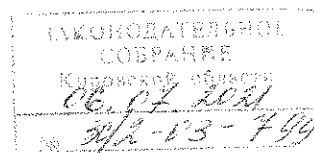 ЗАКОНОДАТЕЛЬНОЕ
СОБРАНИЕ
Кировской области
06.07.2021
№